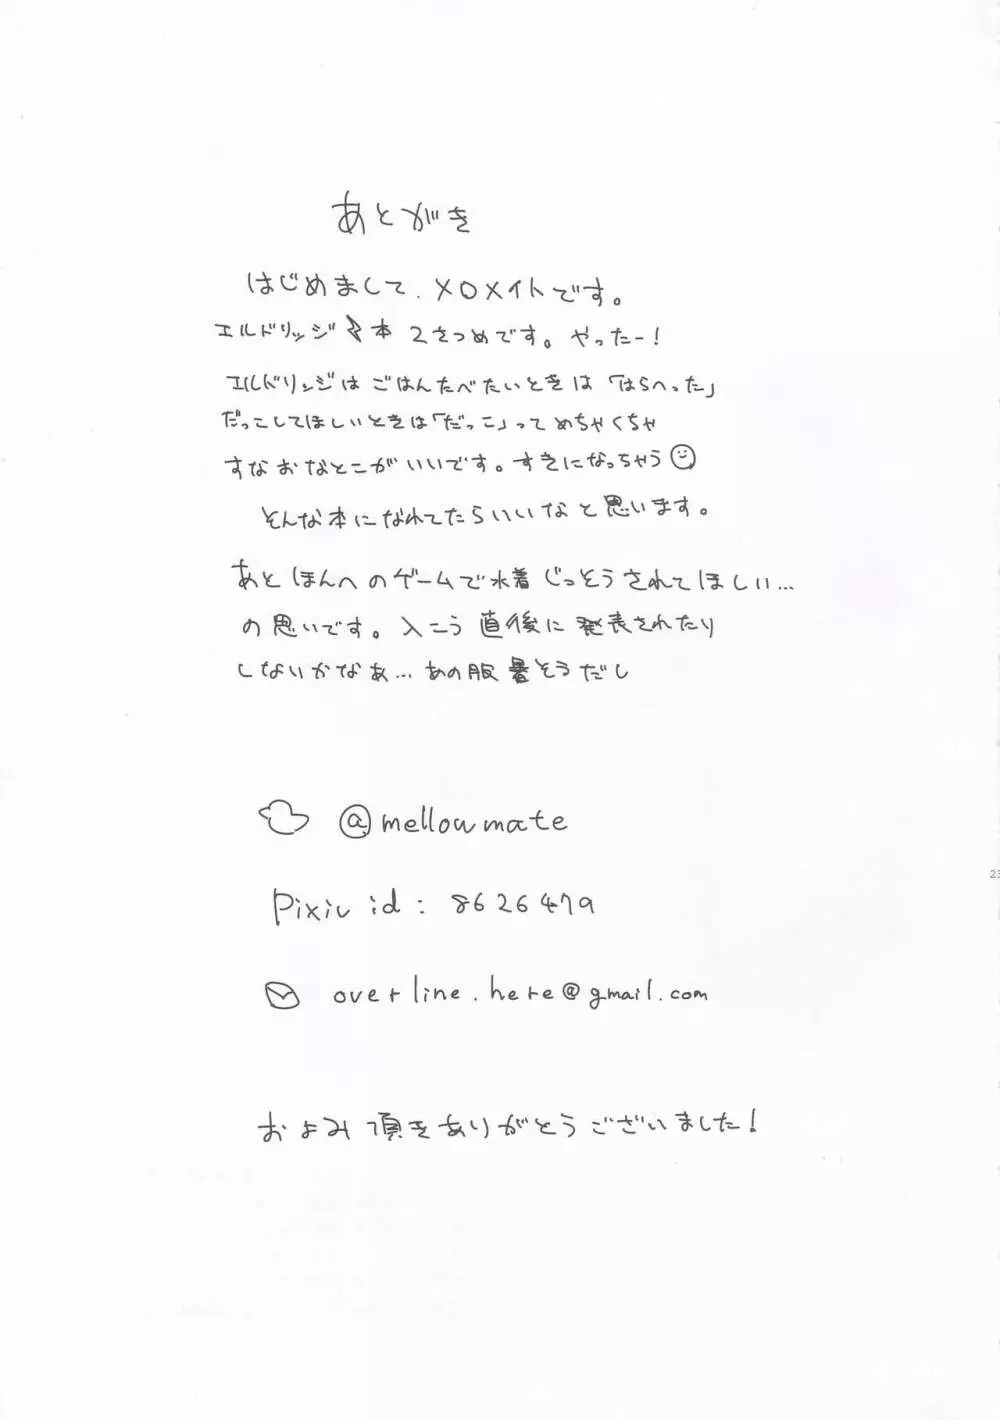 あとがき
はじめまして、メロメイトです。
エルドリッジ本 2さつめです。やったー!
エルドリッジは ごはんたべたいときは「はらへった」
だっこしてほしいときは「だっこ」って めちゃくちゃ
すなおなとこがいいです。すきになっちゃう
そんな本になれてたらいいなと思います。
あと ほんぺのゲームで水着じっそうされてほしい…
の思いです。入こう直後に発表されたり
しないかなぁ…あの服暑そうだし
@mellowmate
Pixiv id: 8626479
overline.here@gmail.com
およみ頂きありがとうございました!
23